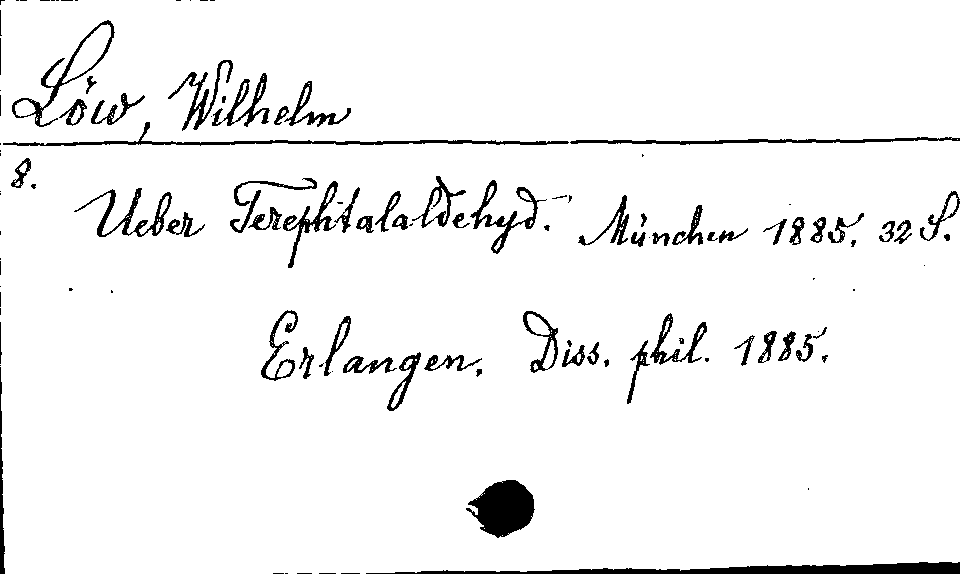 Löw, Wilhelm
8.
Ueber Terephtalaldehyd. München 1885. 32 S.
Erlangen. Diss. phil. 1885.